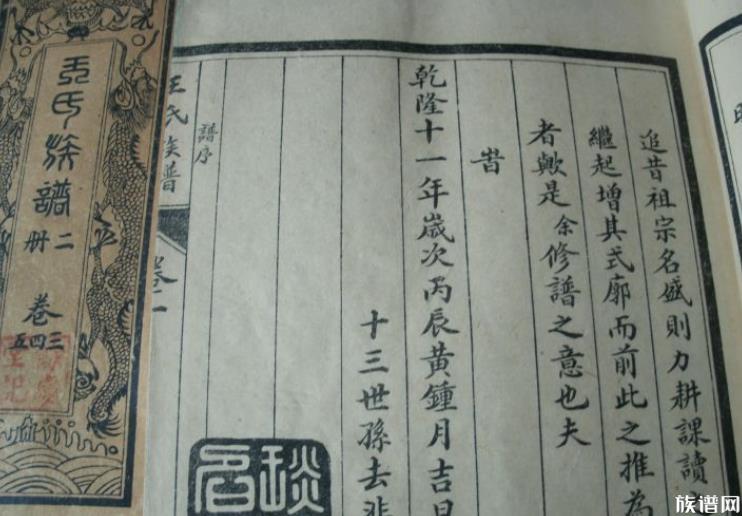 追昔祖宗名盛則力耕課讀
繼起增其式廓而前此之推為
者歟是余修譜之意也夫
旹
乾隆十一年歲次丙辰黃鍾月吉日
十三世孫去非
譜序
王氏族譜
卷二
王氏族譜
二冊
卷
三四五
族谱网